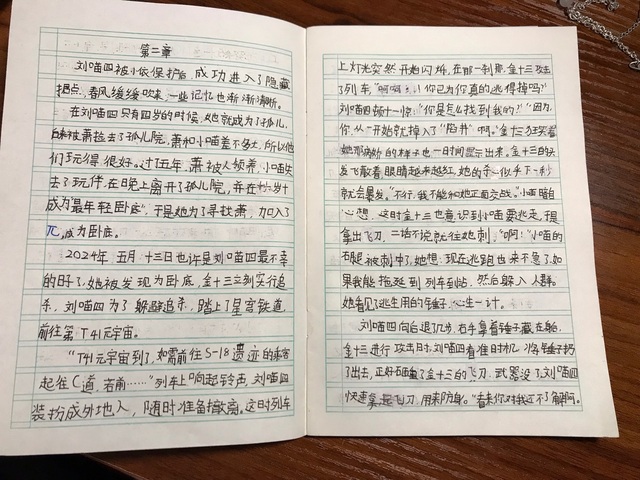 第二章
刘喵四被小依保护着，成功进入了隐藏
据点，春风缓缓吹来，一些记忆也渐渐清晰。
在刘喵四只有四岁的时候，她就成为了孤儿，
被萧捡去了孤儿院，萧和小喵差不多大，所以他
们玩得很好。过了五年，萧被人领养，小喵失
去了玩伴，在晚上离开了孤儿院，并在十岁
成为"最年轻卧底"，于是她为了寻找萧，加入了
π，成为卧底。
2024年，五月十三日也许是刘喵四最不幸
的日子，她被发现为卧底，金十三立刻实行追
杀，刘喵四为了躲避追杀，踏上了星宫铁道，
前往第T41元宇宙。
"T41元宇宙到了，如需前往S-18遗迹的乘客
起往C道，若前……"列车上响起铃声，刘喵四
装扮成外地人，随时准备撤离。这时列车
上灯光突然开始闪烁，在那一刹那，金十三攻击
了列车"啊啊！小你已为你真的逃得掉吗？"
刘喵四顿十一惊："你是怎么找到我的？""因为
你，从一开始就掉入了"陷井"啊。"金十三狂笑着
她那病娇的样子也一时间显示出来，金十三的头
发飞散着眼睛越来越红，她的杀心似乎下一秒
就会暴发。"不行，我不能和她正面交战。"小喵暗自
心想，这时金十三也意识到小喵要逃走，于是
拿出飞刀，二话不说就往她刺，"啊！"小喵的
右腿被刺中了，她想：现在逃跑也来不急了，如
果我能拖延到列车到站，然后躲入人群。
她看见了逃生用的锤子，心生一计。
刘喵四向后退几步，右手拿着锤子藏在身后，
金十三进行攻击时，刘喵四看准时机，将锤子扔
了出去，正好砸中了金十三的飞刀，武器没了，刘喵四
快速拿起飞刀，用来防身。"看来你对我还不了解啊。